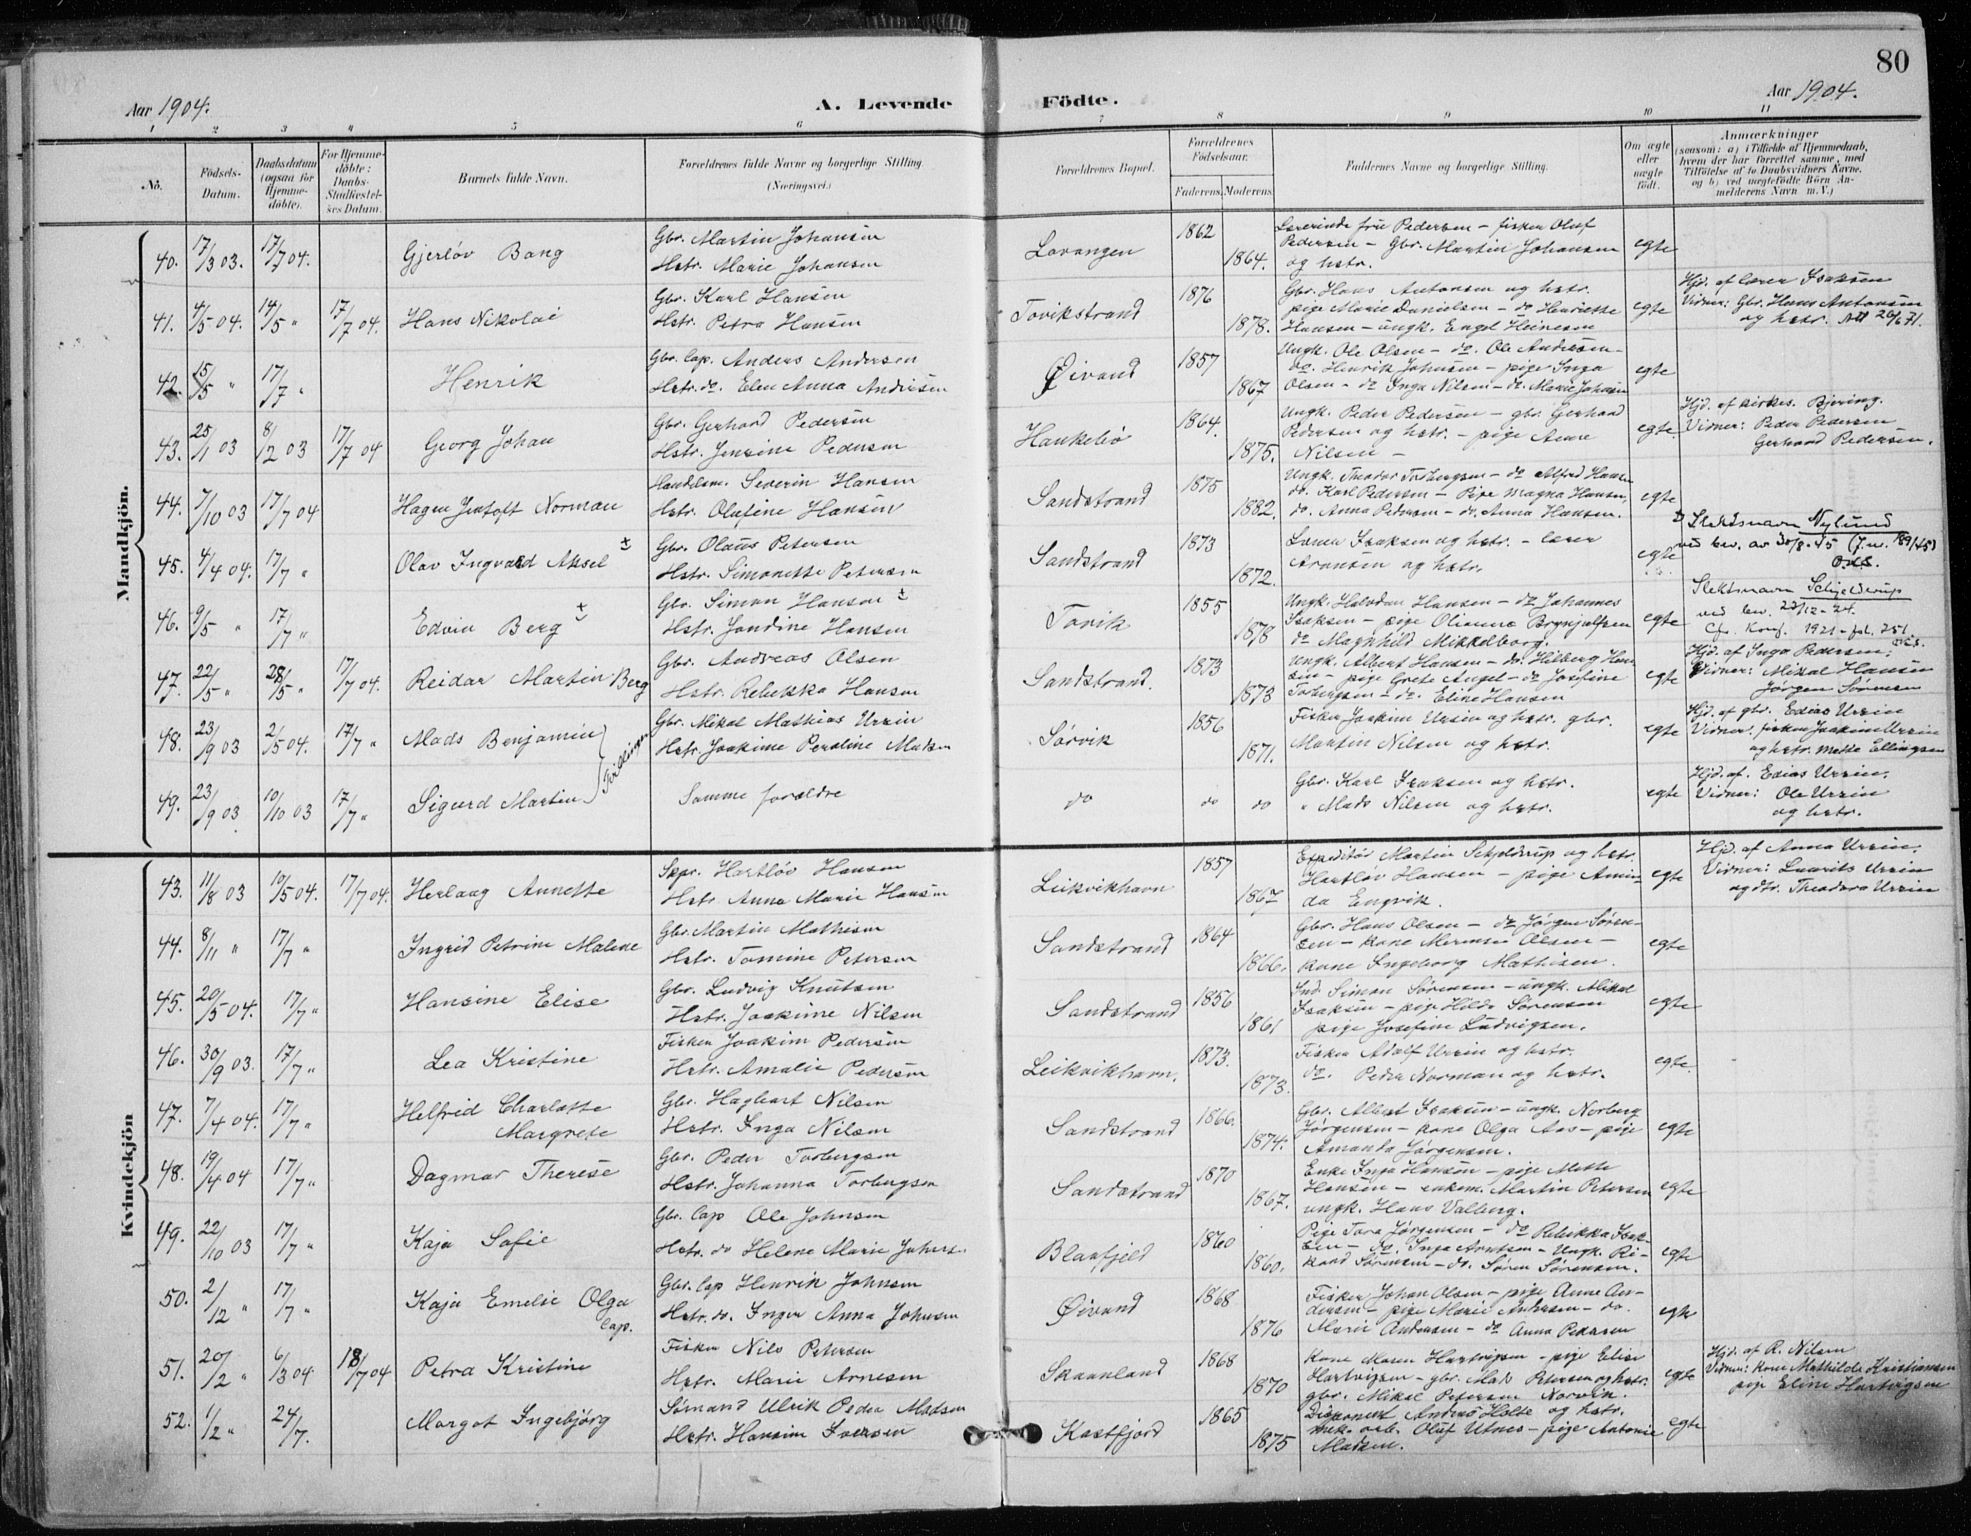 80
Aar 1904.
A. Levende Födte.
Aar 1904.
1 2 3 4 5 6 7 8 9 10 11
No.
Födsels-Datum.
Daabsdatum (ogsaa for Hjemme-döbte).
For Hjemme-döbte: Daabs-Stadfæstel-ses Datum.
Barnets fulde Navn.
Forældrenes fulde Navne og borgerlige Stilling (Næringsvei.)
Forældrenes Bopæl.
Forældrenes Födselsaar.
Faderens. Moderens.
Faddernes Navne og borgerlige Stilling.
Om ægte eller uægte födt.
Anmærkninger
(saasom: a) i Tilfælde af Hjemmedaab, hvem der har forrettet samme, med Tilföielse af to Daabsvidners Navne, og b) ved uægtefödte Börn An-melderens Navn m. V.)
Mandkjön.
40. 17/3 03. 17/7 04. Gjerløv Bang
Gbr. Martin Johansen
Hstr. Marie Johansen
Lavangen 1862 1864.
Lærerinde frk Pedersen – fisker Oluf
Pedersen – Gbr. Martin Johansen
og hstr.
egte
41. 4/5 04. 14/5 " 17/7 04. Hans Nikolai
Gbr. Karl Hansen
Hstr. Petra Hansen
Tovikstrand 1876 1878.
Gbr. Hans Antonsen og hstr.
pige Marie Danielsen – do Henriette
Hansen – ungk. Engel Heinesen
egte
Hjd. af lærer Isaksen
Vidner: Gbr. Hans Antonsen
og hstr. 20/6 71.
42. 15/5 " 17/7 " Henrik
Gbr. Lap. Anders Andersen
Hstr. do. Elen Anna Andersen
Øivand 1857 1867
Ungk. Ole Olsen – do. Ole Andersen –
do. Henrik Johnsen – pige Inga
Olsen – do Inga Nilsen – do. Marie Johnsen
egte
43. 25/1 03 8/12 03 17/7 04 Georg Johan
Gbr. Gerhard Pedersen
Hstr. Jensine Pedersen
Haukebø 1864. 1875.
Ungk. Peder Pedersen – gbr. Gerhard
Pedersen og hstr. – pige Anne
Nilsen –
egte.
Hjd. af kirkes. Bjering.
Vidner: Peder Pedersen
Gerhard Pedersen.
44. 7/10 03 17/7 04 Hagen Jentoft Norman
Handelsm. Severin Hansen
Hstr. Olufine Hansen
Sandstrand 1875 1882.
Ungk. Teodor Torbergsen – do Alfred Hansen
do. Karl Pedersen – Pige Magna Hansen,
do. Anna Pedersen – do. Anna Hansen.
egte
45. 4/4 04. 17/7 " Olav Ingvald Aksel ±
Gbr. Olaus Petersen
Hstr. Simonette Petersen
Sandstrand 1873 1872.
Lærer Isaksen og hstr. – lærer
Aronsen og hstr.
egte
Slektsnavn Nylund
ved bev. av 30/8-45 (J.n. 189/45)
46. 9/5 " 17/7 " Edvin Berg ±
Gbr. Simon Hansen ±
Hstr. Jondine Hansen
Tovik 1855 1878
Ungk. Halvdan Hansen – do Johannes
Isaksen – pige Olianna Brynjulfsen
do Magnhild Mikkelborg.
egte
Slektsnavn Schjelderup
ved bev. 23/12-24.
Cfr. Konf. 1921 – fol. 251
47. 22/5 " 28/5 " 17/7 04. Reidar Martin Berg
Gbr. Andreas Olsen
Hstr. Rebekka Hansen
Sandstrand. 1873 1873
Ungk. Albert Hansen – do. Hilberg Han-
sen – pige Grete – do Josefine
Torbergsen – do. Eline Hansen
egte
Hjd. af Inga Pedersen.
Vidner: Mikal Hansen
Jørgen Sørensen
48. 23/9 03 2/5 04. 17/7 " Mads Benjamin
Gbr. Mikal Mathias Ursin
Hstr. Joakime Peraline Madsen
Sørvik 1856 1871.
Fisker Joakim Ursin og hstr. gbr.
Martin Nilsen og hstr.
egte
Hjd. af gbr. Edias Ursin
Vidner: fisker Joakim Ursin
og hstr. Mette Ellingsen
Tvillinger
49. 23/9 03 10/10 03 17/7 " Sigurd Martin
Samme forældre
do do do
Gbr. Karl Isaksen og hstr.
" Mads Nilsen og hstr.
egte
Hjd. af. Edias Ursin.
Vidner: Ole Ursin
og hstr.
Kvindekjön
43. 11/8 03 10/5 04. 17/7 04. Herlaug Annette
Skpr. Hartløv Hansen
Hstr. Anna Marie Hansen
Leikvikhavn 1857 1867
Expeditør Martin Schjelderup og hstr.
Hartløv Hansen – pige Amin-
da Engvik.
egte
Hjd. af Anna Ursin.
Vidner: Laurits Ursin
og dtr. Theodora Ursin
44. 8/11 " 17/7 " Ingrid Petrine Malene
Gbr. Martin Mathisen
Hstr. Tomine Petersen
Sandstrand 1864 1866.
Gbr. Hans Olsen – do Jørgen Søren-
sen – kone Olsen –
kone Ingeborg Mathisen.
egte
45. 20/5 04. 17/7 " Hansine Elise
Gbr. Ludvig Knutsen
Hstr. Joakime Nilsen
Sandstrand 1856 1861
Ind. Simon Sørensen – ungk. Mikal
Isaksen – pige Hilda Sørensen
pige Josefine Ludvigsen.
egte
46. 30/9 03. 17/7 " Lea Kristine
Fisker Joakim Pedersen
Hstr. Amalie Pedersen
Leikvikhavn. 1873. 1873.
Fisker Adolf Ursin og hstr.
do. Peder Norman og hstr.
egte.
47. 7/4 04. 17/7 " Helfrid Charlotte
Margrete
Gbr. Hagbart Nilsen
Hstr. Inga Nilsen
Sandstrand 1866. 1874.
Gbr. Albert Isaksen – ungk. Norberg
Jørgensen – kone Olga Aas – pige
Amanda Jørgensen.
egte
48. 19/4 04 17/7 " Dagmar Therese
Gbr. Peder Torbergsen
Hstr. Johanna Torbergsen
Sandstrand 1870 1867.
Enke Inga Hansen – pige Mette
Hansen – enkem. Martin Petersen
ungk. Hans Valberg.
egte
49. 22/10 03 17/7 " Kaja Sofie
Gbr. Lap Ole Johnsen
Hstr. do Helene Marie Johnsen
Blaafjeld 1860 1860.
Pige Tora Jørgensen – do Rebekka Isak-
sen – do. Inga Arntsen – Ungk. Ri-
kard Sørensen – do. Søren Sørensen.
egte
50. 2/12 " 17/7 " Kaja Emelie Olga
Lap.
Gbr. Lap Henrik Johnsen
Hstr. do. Inger Anna Johnsen
Øivand 1868 1876
Fisker Johan Olsen – pige Anne An-
dersen – pige Marie Andersen – do.
Marie Andersen – do Anna Pedersen
egte
51. 20/2 " 6/3 04 18/7 04 Petra Kristine
Fisker Nils Petersen
Hstr. Marie Arnesen
Skaanland 1868 1870
Kone Maren Hartvigsen – pige Elise
Hartvigsen – gbr. Mads Petersen og hstr.
gbr. Mikal Petersen Norvik.
egte
Hjd. af R. Nilsen
Vidner: kone Mathilde Kristiansen
pige Eline Hartvigsen
52. 1/2 " 24/7. Margot Ingebjørg
Sømand Ulrik Peder Madsen
Hstr. Hansine Iversen
Kastfjord 1865 1875
Disponent Andreas Holte og hstr.
mek. arb. Oluf Utnes – pige Antonie
Madsen.
egte